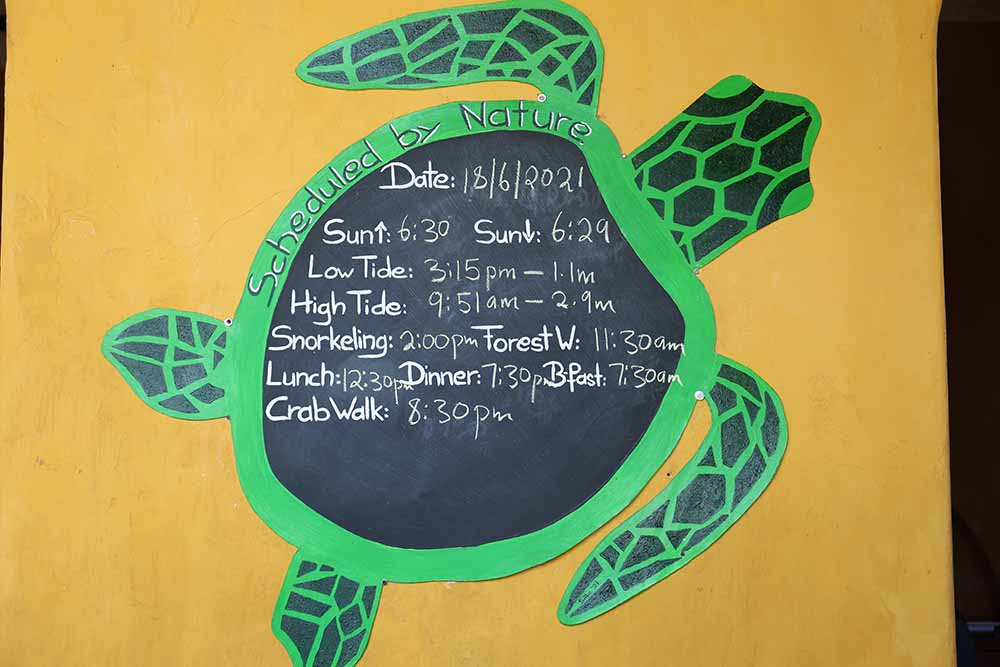 Scheduled by Nature
Date: 18/6/2021
Sun↑: 6:30 Sun↓: 6:29
Low Tide: 3:15pm – 1.1m
High Tide: 9:51am – 2.9m
Snorkeling: 2:00pm Forest W: 11:30am
Lunch: 12:30pm Dinner: 7:30pm B.fast: 7:30am
Crab Walk: 8:30pm